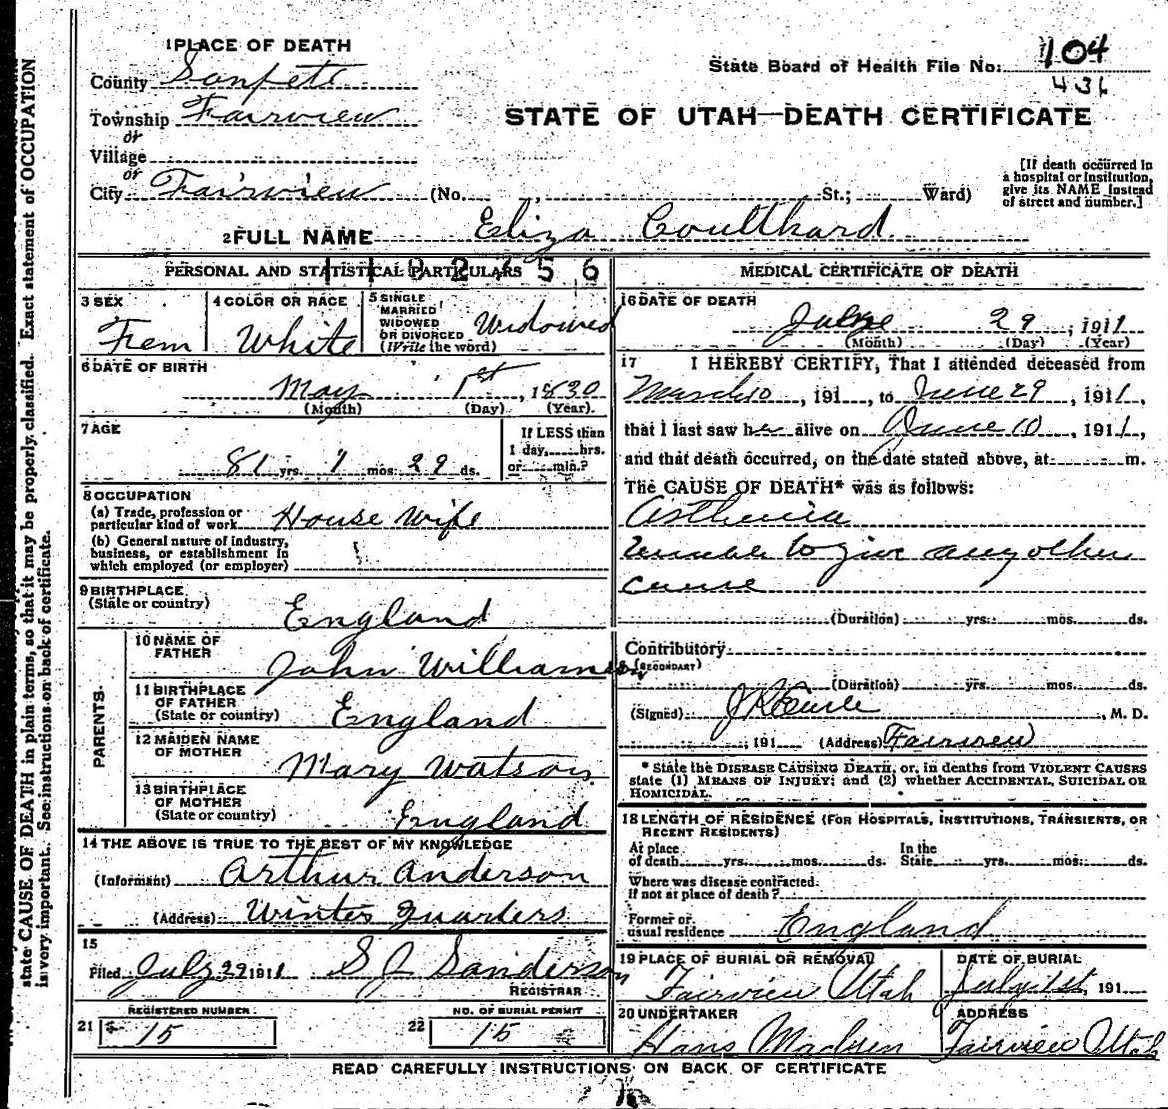 1 PLACE OF DEATH
County Sanpete
Township Fairview
or
Village
or
City Fairview (No. , St.; Ward)
State Board of Health File No. 104
436
STATE OF UTAH—DEATH CERTIFICATE
[If death occurred in
a hospital or institution,
give its NAME instead
of street and number.]
2 FULL NAME Eliza Coulthard
PERSONAL AND STATISTICAL PARTICULARS
3 SEX
Fem
4 COLOR OR RACE
White
5 SINGLE
MARRIED
WIDOWED
OR DIVORCED
(Write the word)
Widowed
6 DATE OF BIRTH
May 1st, 1830
(Month) (Day) (Year)
7 AGE
81 yrs. 1 mos. 29 ds.
If LESS than
1 day, hrs.
or min.?
8 OCCUPATION
(a) Trade, profession or
particular kind of work House Wife
(b) General nature of industry,
business, or establishment in
which employed (or employer)
9 BIRTHPLACE
(State or country)
England
PARENTS.
10 NAME OF
FATHER
John Williamson
11 BIRTHPLACE
OF FATHER
(State or country)
England
12 MAIDEN NAME
OF MOTHER
Mary Watson
13 BIRTHPLACE
OF MOTHER
(State or country)
England
14 THE ABOVE IS TRUE TO THE BEST OF MY KNOWLEDGE
(Informant) Arthur Anderson
(Address) Winter Quarters
15
Filed July 29 1911 S J Sanderson
REGISTRAR
21 REGISTERED NUMBER
15
22 NO. OF BURIAL PERMIT
15
MEDICAL CERTIFICATE OF DEATH
16 DATE OF DEATH
29, 1911
(Month) (Day) (Year)
17 I HEREBY CERTIFY, That I attended deceased from
March 10, 191 , to June 29, 1911,
that I last saw her alive on June 10, 1911,
and that death occurred, on the date stated above, at m.
The CAUSE OF DEATH* was as follows:
Asthenia
unable to give any other
cause
(Duration) yrs. mos. ds.
Contributory
(SECONDARY)
(Duration) yrs. mos. ds.
(Signed) , M. D.
, 191 (Address) Fairview
* State the DISEASE CAUSING DEATH, or, in deaths from VIOLENT CAUSES
state (1) MEANS OF INJURY; and (2) whether ACCIDENTAL, SUICIDAL OR
HOMICIDAL.
18 LENGTH OF RESIDENCE (FOR HOSPITALS, INSTITUTIONS, TRANSIENTS, OR
RECENT RESIDENTS)
At place
of death yrs. mos. ds.
In the
State yrs. mos. ds.
Where was disease contracted
if not at place of death?
Former or
usual residence England
19 PLACE OF BURIAL OR REMOVAL
Fairview Utah
DATE OF BURIAL
July 1st, 191
20 UNDERTAKER
Hans Madsen
ADDRESS
Fairview Utah
READ CAREFULLY INSTRUCTIONS ON BACK OF CERTIFICATE
state CAUSE OF DEATH in plain terms, so that it may be properly classified. Exact statement of OCCUPATION
is very important. See instructions on back of certificate.